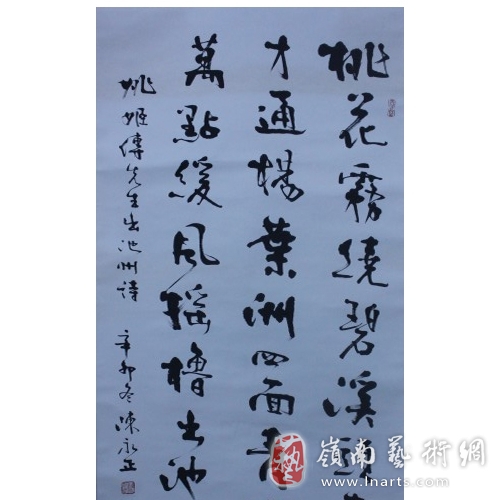 桃花霧繞碧溪頭
才通楊葉洲四面青
萬點緩風搖櫓出池
姚姬傳先生出池州詩 辛卯冬 陳永正
藝
嶺南藝術網
www.lnarts.com